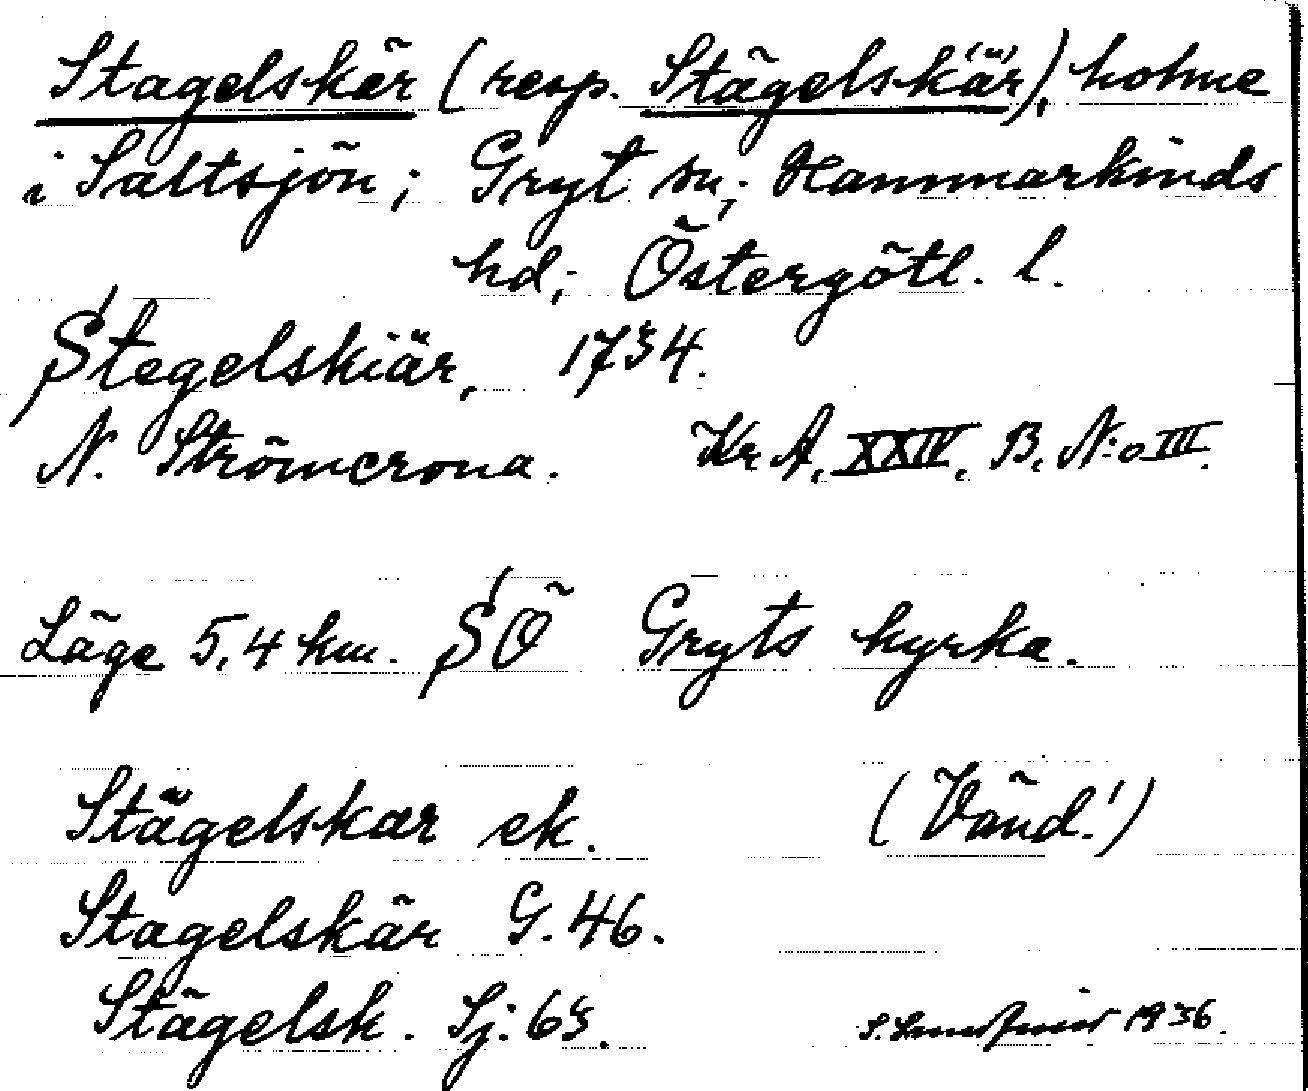 Stagelskär (resp. Stägelskär), holme
i Saltsjön; Gryt sn; Hammarkinds
hd; Östergötl. l.
Stegelskiär, 1734.
N. Strömcrona. Kr. A. XXIV. B. N:o III.
Läge 5,4 km. SÖ Gryts kyrka.
Stägelskär ek. (Vänd!)
Stagelskär G. 46.
Stägelsk. Sj: 63.
S. 1936.